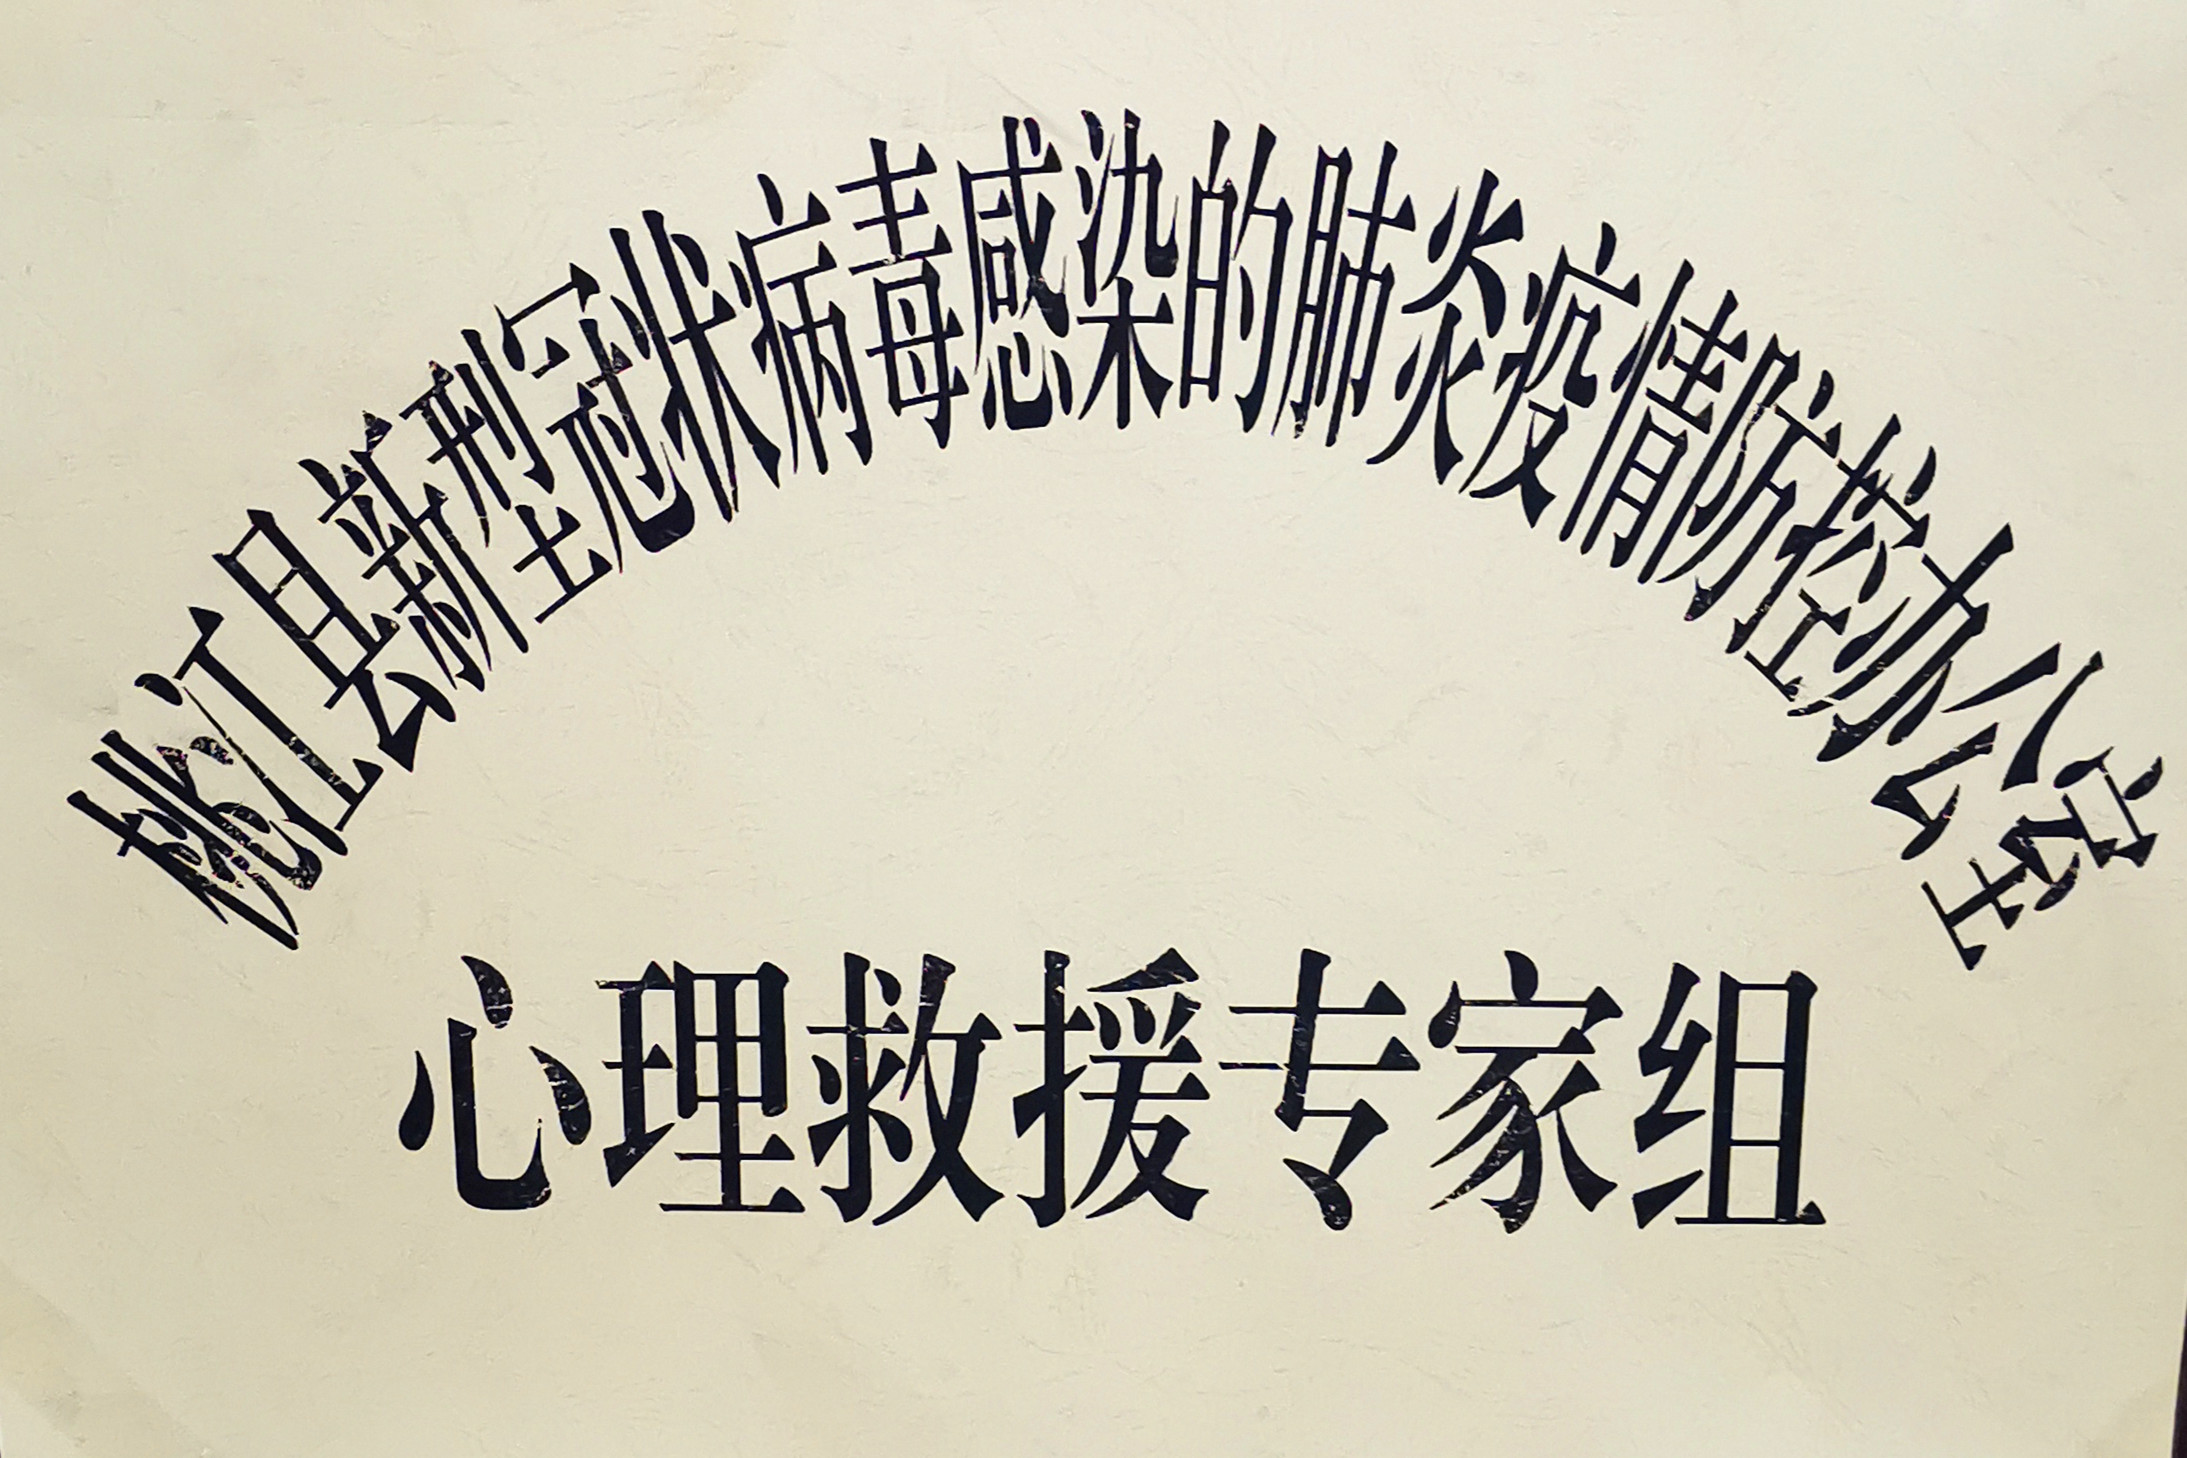 桃江县新型冠状病毒感染的肺炎疫情防控办公室
心理救援专家组